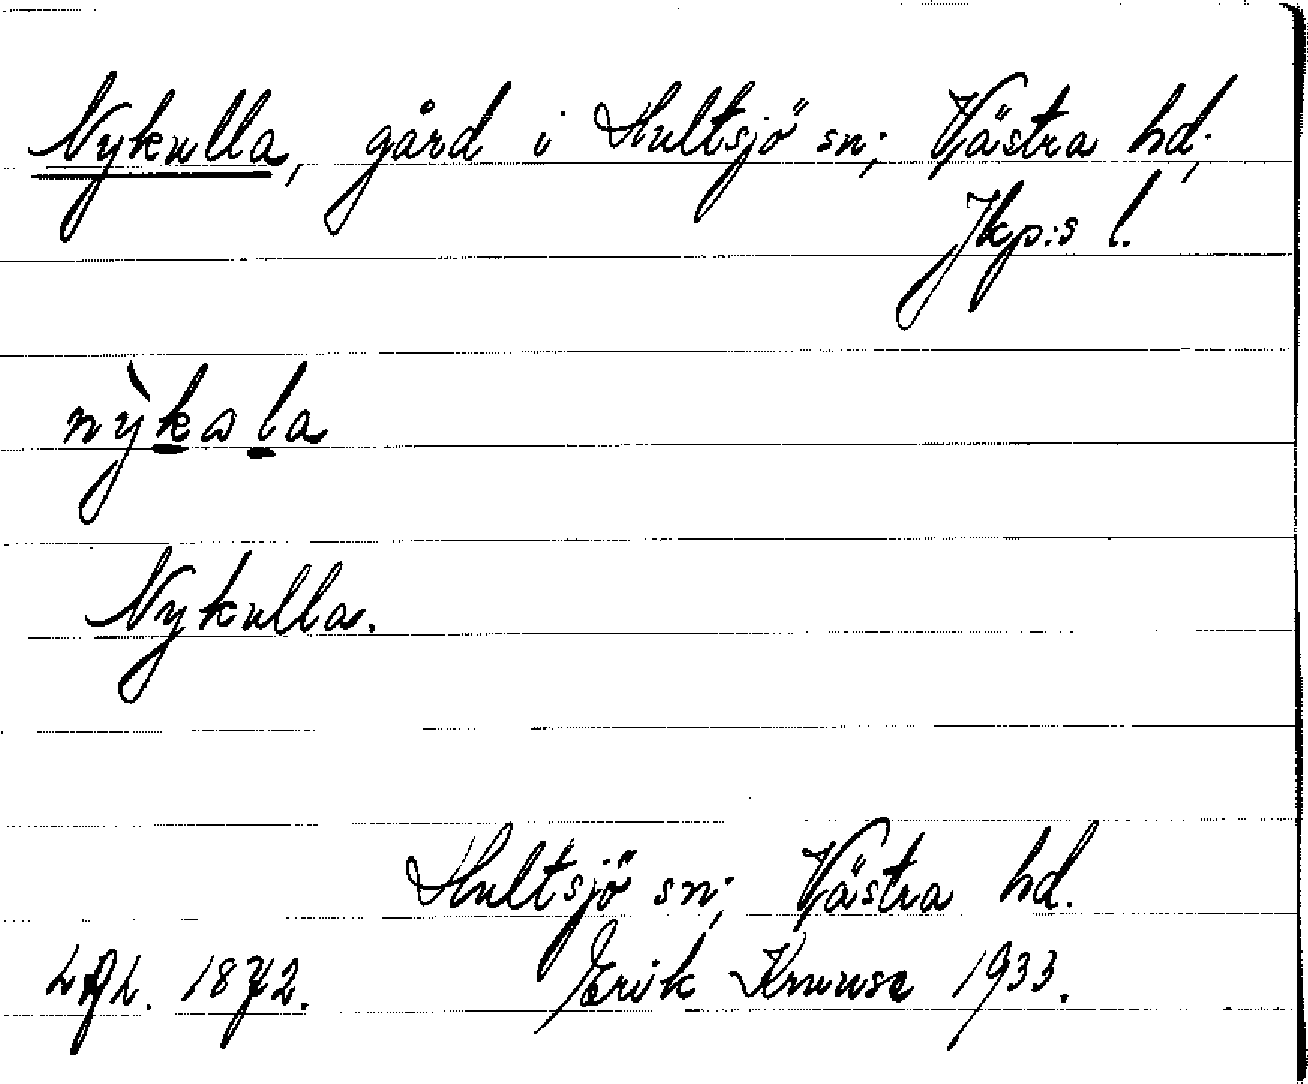 Nykulla, gård i Hultsjö sn; Västra hd;
Jkp:s l.
nỳkala
Nykulla.
Hultsjö sn; Västra hd.
1872. Erik Kruuse 1933.